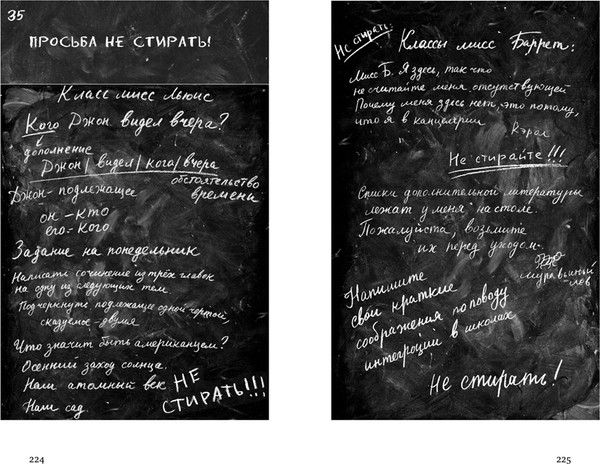 35
ПРОСЬБА НЕ СТИРАТЬ!
Класс мисс Льюис
Кого Джон видел вчера?
дополнение
Джон/ видел/ кого/ вчера
Джон - подлежащее
обстоятельство
времени
он - кто
его - кого
Задание на понедельник
Написать сочинение из трёх главок
на одну из следующих тем.
Подчеркните подлежащее одной чертой,
сказуемое - двумя
Что значит быть американцем?
Осенний заход солнца.
Наш атомный век
Наш сад.
НЕ
СТИРАТЬ!!!
224
Не стирать:
Классы мисс Баррет:
Мисс Б. Я здесь, так что
не считайте меня отсутствующей
Почему меня здесь нет, это потому,
что я в канцелярии
Кэрол
Не стирайте!!!
Списки дополнительной литературы
лежат у меня на столе.
Пожалуйста, возьмите
их перед уходом.
муравьиный
лев
Напишите
свои краткие
соображения по поводу
интеграции в школах
Не стирать!
225